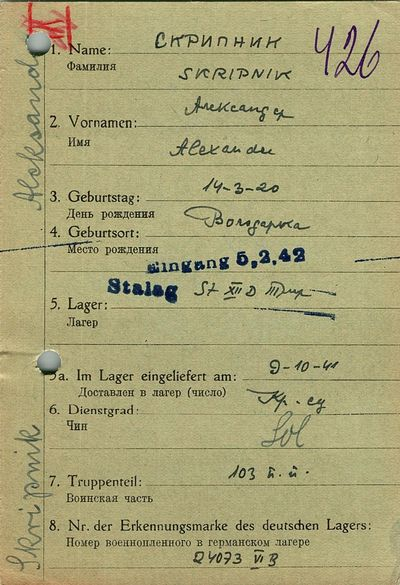 IX
426
СКРИПНИК
1. Name:
Фамилия
SKRIPNIK
Александр
2. Vornamen:
Имя
Alexander
14-3-20
3. Geburtstag:
День рождения
Володарка
4. Geburtsort:
Место рождения
Eingang 5,2.42
Stalag St XII D Trier
5. Lager:
Лагер
5a. Im Lager eingeliefert am: 9-10-41
Доставлен в лагер (число)
6. Dienstgrad:
Чин
Sol
7. Truppenteil: 103 п.п.
Воинская часть
8. Nr. der Erkennungsmarke des deutschen Lagers:
Номер военнопленного в германском лагере
24073 VI B
Skripnik Aleksand